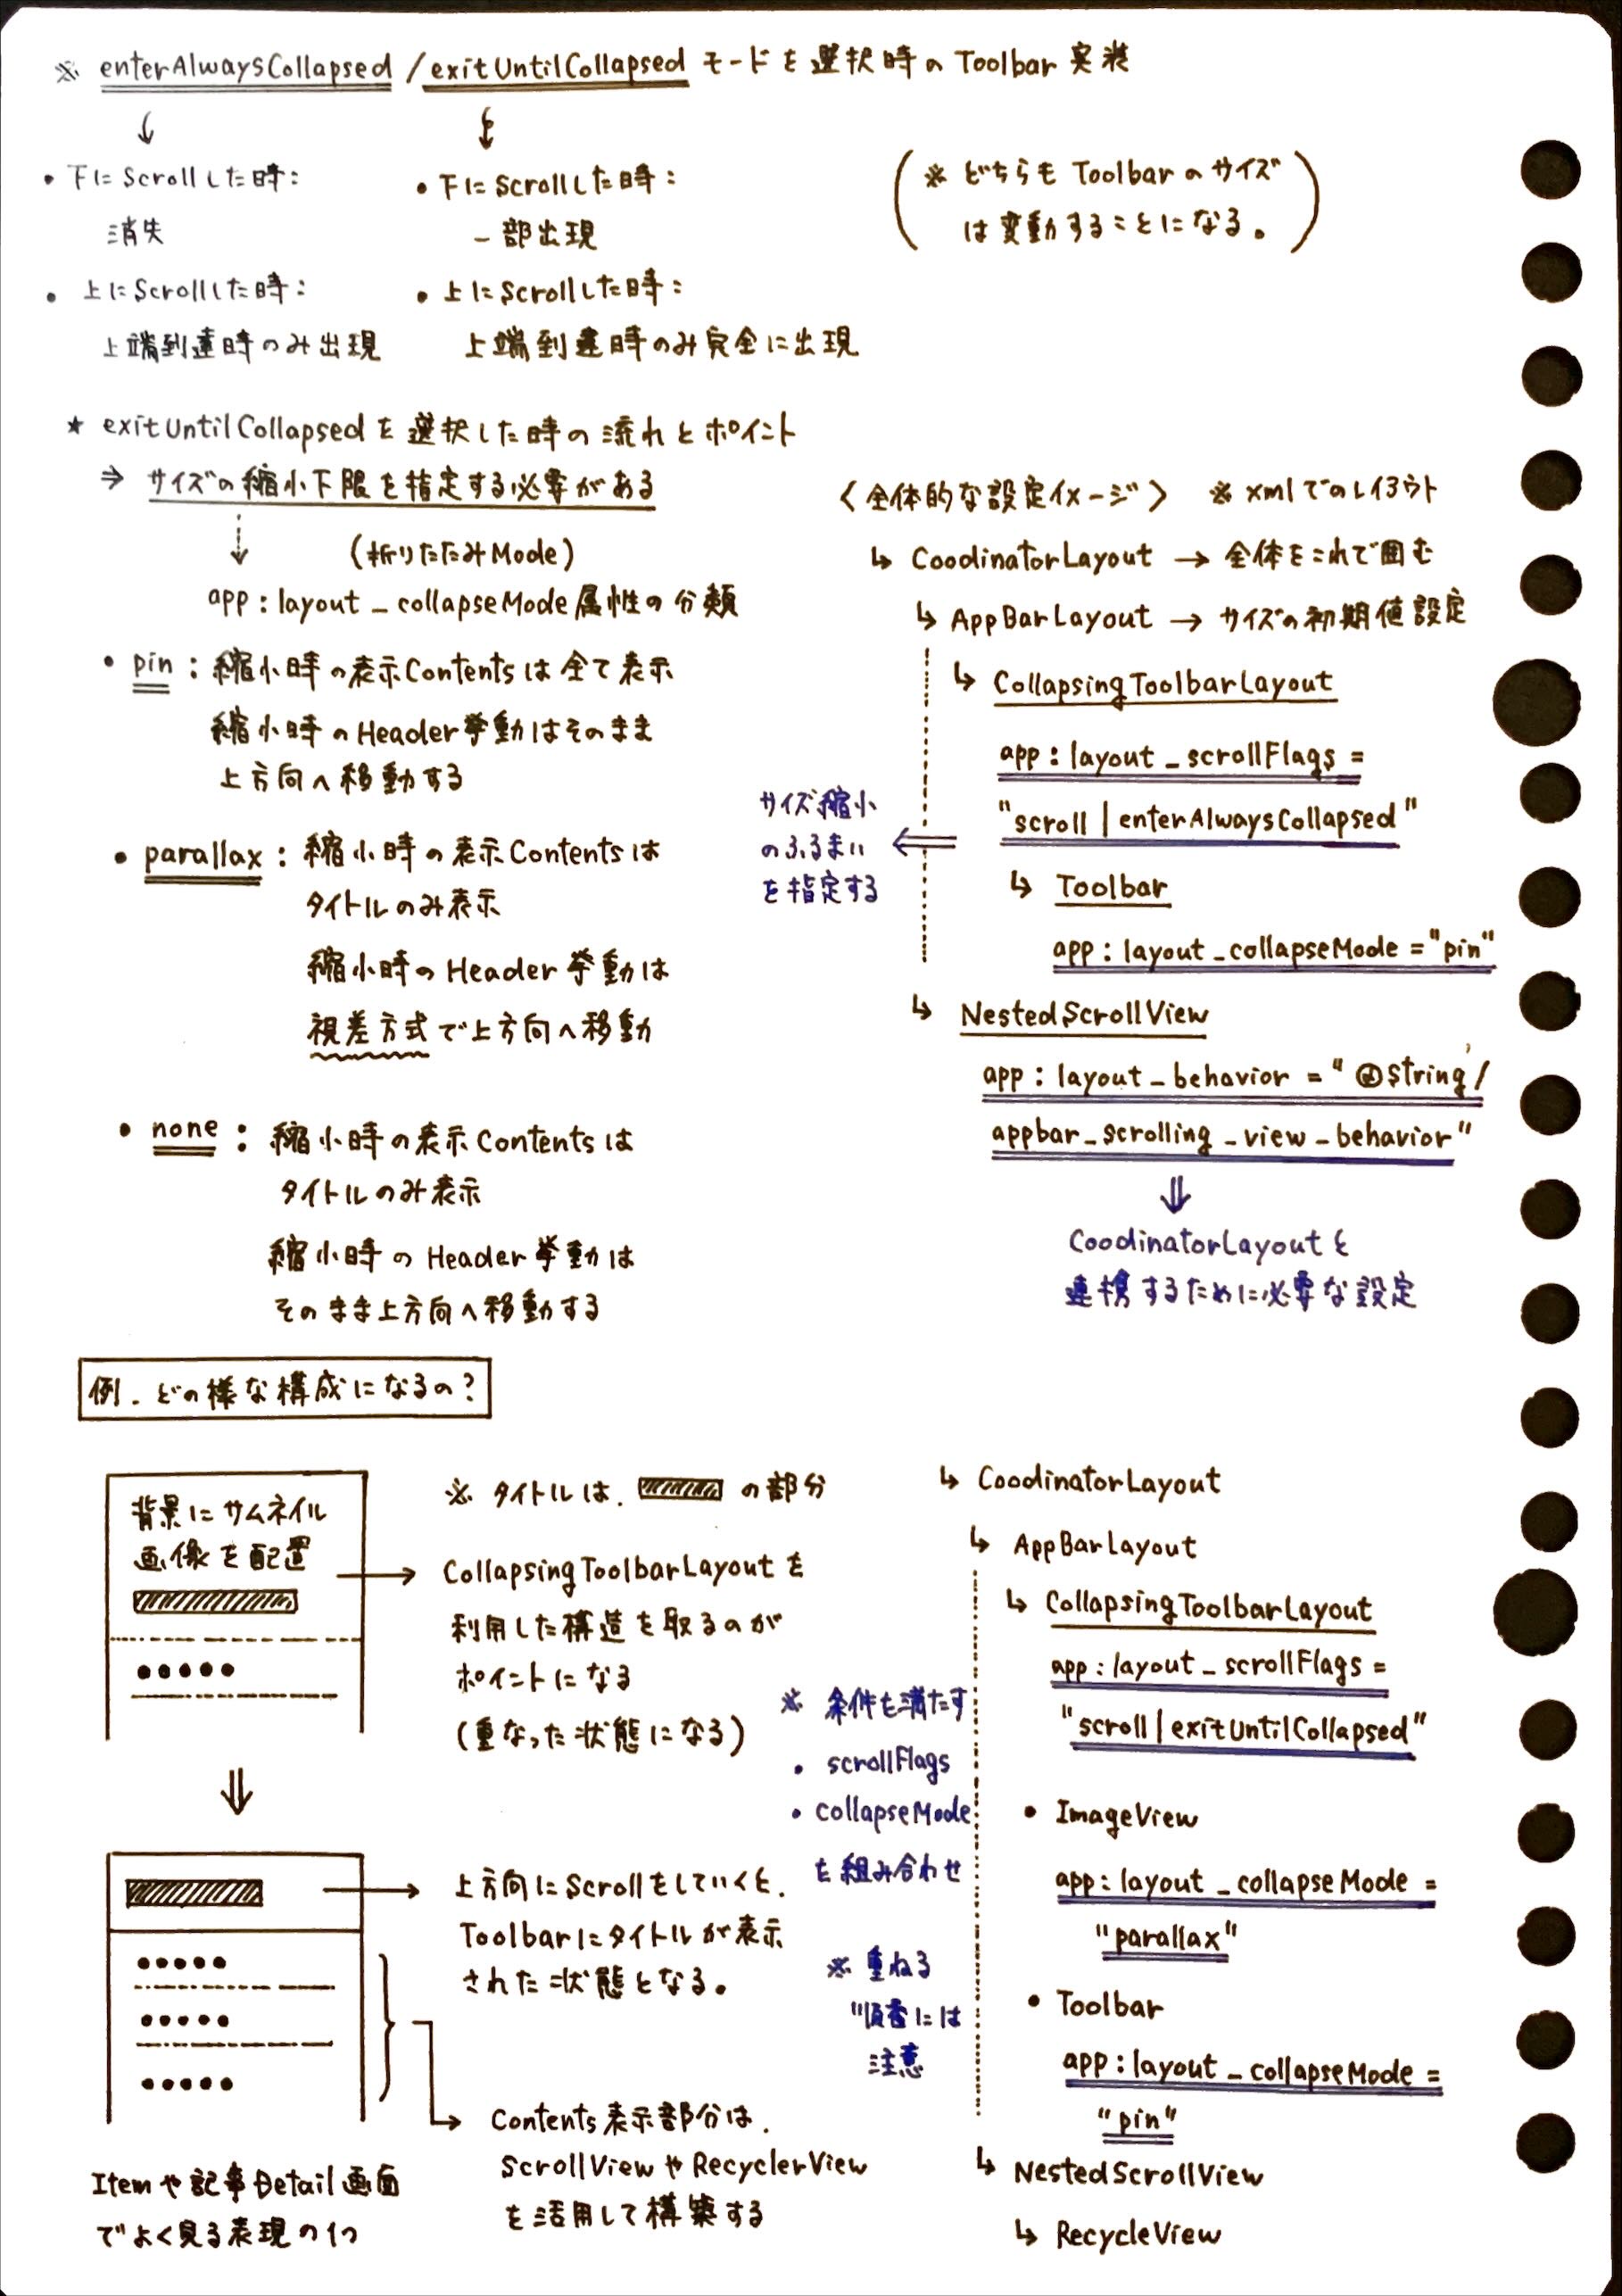 ※ enterAlwaysCollapsed / exitUntilCollapsed モードを選択時のToolbar実装
・下にScrollした時：
消失
・上にScrollした時：
上端到達時のみ出現
・下にScrollした時：
一部出現
・上にScrollした時：
上端到達時のみ完全に出現
(※ どちらも Toolbarのサイズ
は変動することになる。)
★ exitUntilCollapsedを選択した時の流れとポイント
⇒ サイズの縮小下限を指定する必要がある
(折りたたみMode)
app:layout_collapseMode属性の分類
・pin：縮小時の表示Contentsは全て表示
縮小時のHeader挙動はそのまま
上方向へ移動する
・parallax：縮小時の表示Contentsは
タイトルのみ表示
縮小時のHeader挙動は
視差方式で上方向へ移動
・none：縮小時の表示Contentsは
タイトルのみ表示
縮小時のHeader挙動は
そのまま上方向へ移動する
〈全体的な設定イメージ〉 ※ xmlでのレイアウト
↳ CoodinatorLayout → 全体をこれで囲む
↳ AppBarLayout → サイズの初期値設定
↳ CollapsingToolbarLayout
app:layout_scrollFlags=
"scroll|enterAlwaysCollapsed"
サイズ縮小
のふるまい
を指定する
↳ Toolbar
app:layout_collapseMode="pin"
↳ NestedScrollView
app:layout_behavior="@string/
appbar_scrolling_view_behavior"
⇓
CoodinatorLayoutと
連携するために必要な設定
例. どの様な構成になるの？
背景にサムネイル
画像を配置
※ タイトルは、の部分
→ CollapsingToolbarLayoutを
利用した構造を取るのが
ポイントになる
(重なった状態になる)
⇓
→ 上方向にScrollをしていくと、
Toolbarにタイトルが表示
された状態となる。
Contents表示部分は、
ScrollViewやRecyclerView
を活用して構築する
Itemや記事Detail画面
でよく見る表現の1つ
※ 条件を満たす
・scrollFlags
・collapseMode
を組み合わせ
※ 重ねる
順番には
注意
↳ CoodinatorLayout
↳ AppBarLayout
↳ CollapsingToolbarLayout
app:layout_scrollFlags=
"scroll|exitUntilCollapsed"
・ImageView
app:layout_collapseMode=
"parallax"
・Toolbar
app:layout_collapseMode=
"pin"
↳ NestedScrollView
↳ RecycleView